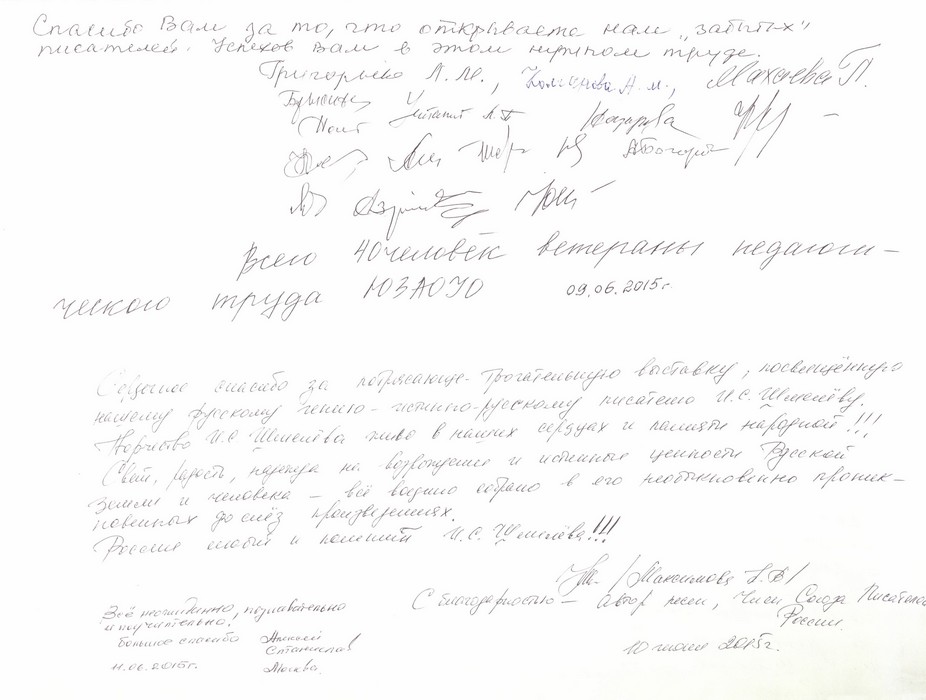 Спасибо Вам за то, что открываете нам „забытых"
писателей. Успехов Вам в этом нужном труде.
Григорьева Л.М., А.М., Махаева Г.
Назарова
Всего 40 человек ветераны педагоги-
ческого труда ЮЗАОУО 09.06.2015г.
Сердечное спасибо за потрясающе-трогательную выставку, посвящённую
нашему русскому гению – истинно-русскому писателю И.С. Шмелёву.
Творчество И.С Шмелёва живо в наших сердцах и памяти народной!!!
Свет, радость, надежда на возрождение и истинные ценности Русской
Земли и человека – всё воедино собрано в его необыкновенно проник-
новенных до слёз произведениях.
Россия любит и помнит И.С. Шмелёва!!!
/Максимова
С благодарностью – автор песен, Член Союза Писателей
России.
10 июня 2015г.
Всё неожиданно, познавательно
и поучительно!
большое спасибо Алексей
Станислав
11.06.2015г. Москва.